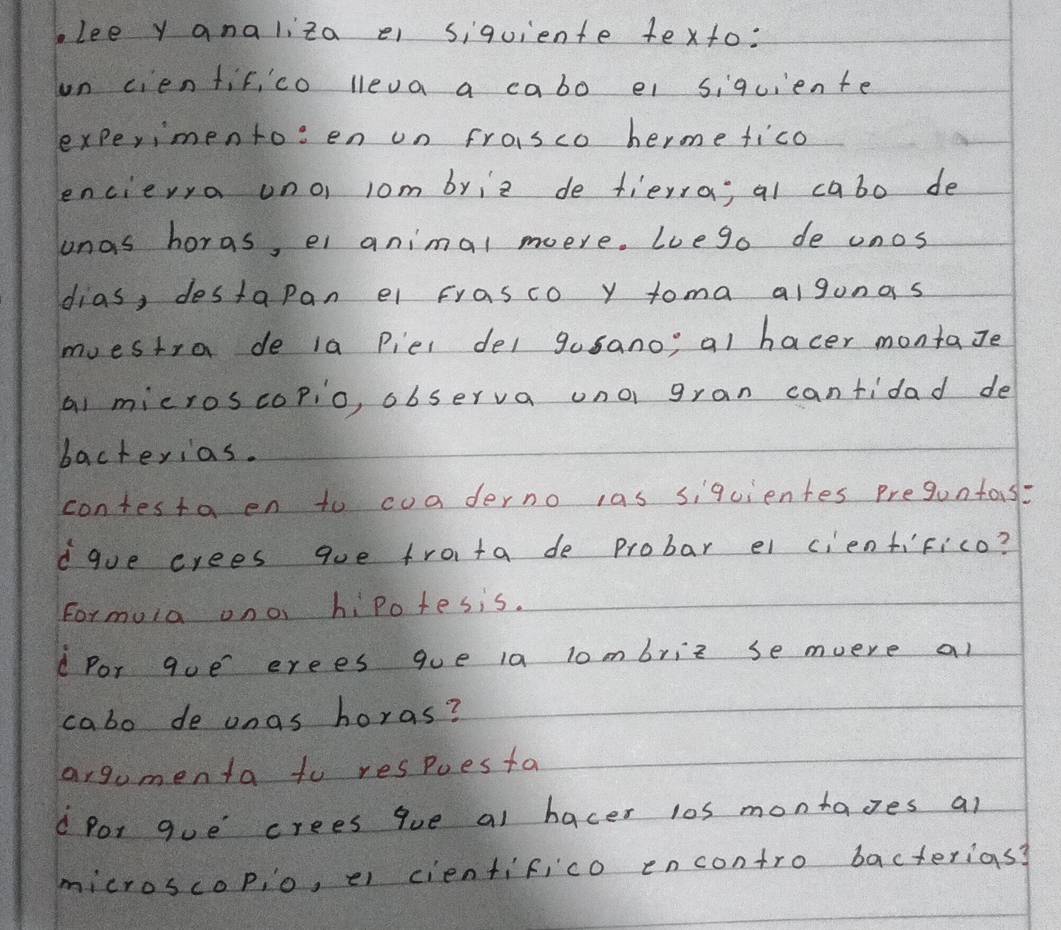 .lee y analiza el siguiente texto:
un cientifico lleva a cabo el siguiente
experimento: en un frasco hermetico
encierra una lombriz de tierra; al cabo de
unas horas, el animal muere. luego de unos
dias, destapan el frasco y toma algunas
muestra de la piel del gusano; al hacer montaje
al microscopio, observa una gran cantidad de
bacterias.
contesta en tu cuaderno las siguientes preguntas:
¿que crees que trata de probar el cientifico?
Formula una hipotesis.
¿Por qué erees que la lombriz se muere al
cabo de unas horas?
argumenta tu respuesta
¿Por qué crees que al hacer los montajes al
microscopio, el cientifico encontro bacterias?